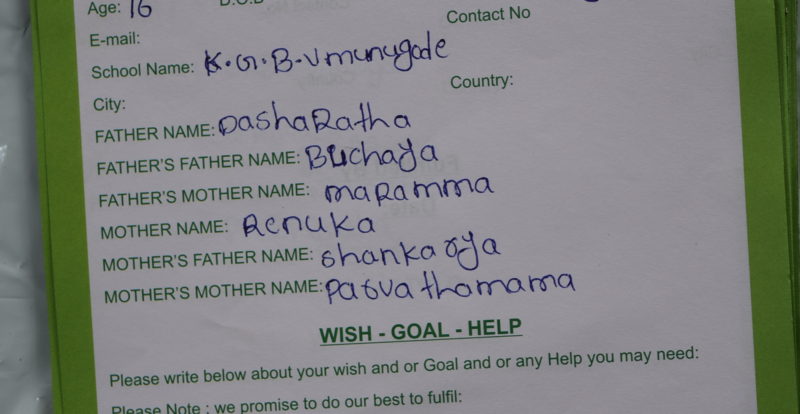 Age: 16 D.O.B
Contact No
E-mail:
School Name: K.G.B.V munugode
City: Country:
FATHER NAME: DashaRatha
FATHER'S FATHER NAME: Buchaya
FATHER'S MOTHER NAME: maRamma
MOTHER NAME: Renuka
MOTHER'S FATHER NAME: shankarya
MOTHER'S MOTHER NAME: Parvathamama
WISH - GOAL - HELP
Please write below about your wish and or Goal and or any Help you may need:
Please Note : we promise to do our best to fulfil: